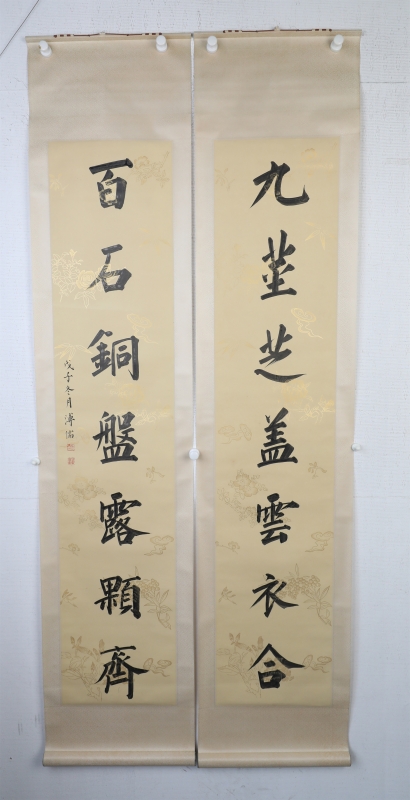 九茎芝盖雲衣合
百石銅盤露顆齊
戊子冬月溥儒